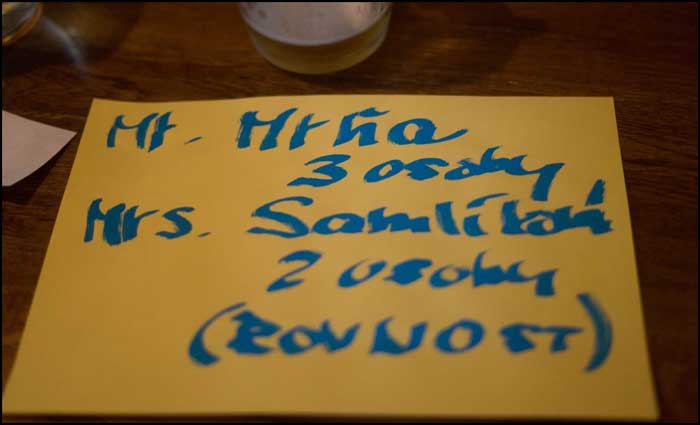 Mr. Mrňa
3 osoby,
Mrs. Samlíková
2 osoby
(ROVNOST)